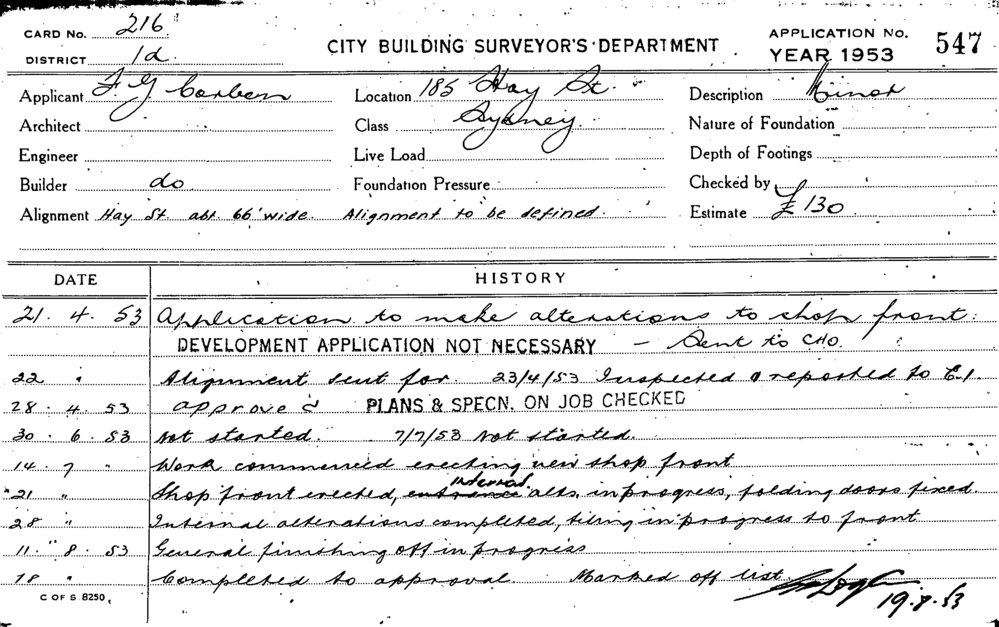 CARD No. 216
DISTRICT 1d.
CITY BUILDING SURVEYOR'S DEPARTMENT
APPLICATION No.
YEAR 1953
547
Applicant F G Corben
Location 185 Hay St.
Description Minor
Architect
Class Sydney
Nature of Foundation
Engineer
Live Load
Depth of Footings
Builder do
Foundation Pressure
Checked by
Alignment Hay St. abt 66' wide. Alignment to be defined.
Estimate £130
DATE HISTORY
21. 4. 53 Application to make alterations to shop front.
DEVELOPMENT APPLICATION NOT NECESSARY – Sent to CHO.
22 " Alignment sent for. 23/4/53 Inspected & reported to C.I.
28. 4. 53 approved PLANS & SPECN. ON JOB CHECKED
30. 6. 53 Not started. 7/7/53 Not started.
14. 7 " Work commenced erecting new shop front
21 " Shop front erected, entrance internal alts. in progress, folding doors fixed.
28 " Internal alterations completed, tiling in progress to front
11. 8. 53 General finishing off in progress
18 " Completed to approval Marked off list
19.8.53
C OF S 8250